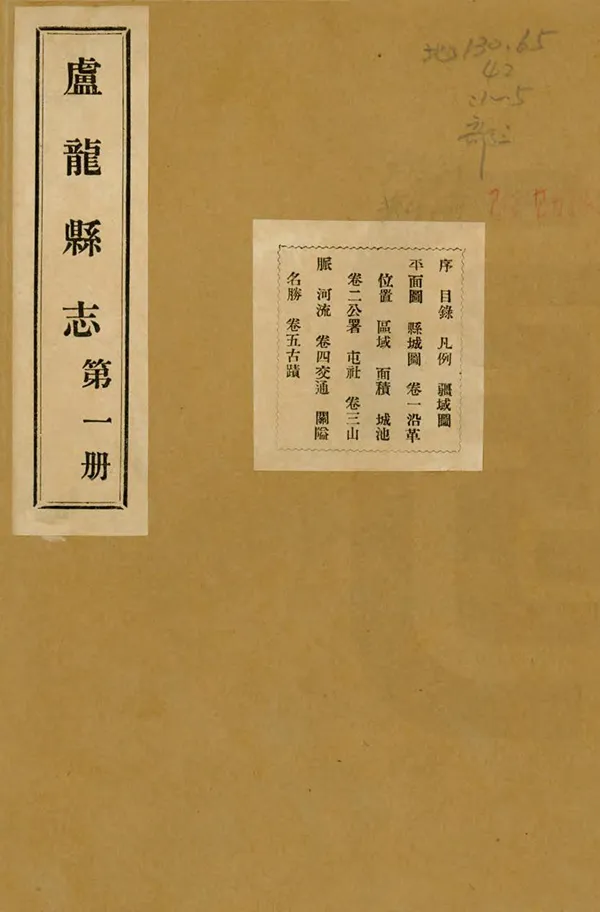 盧龍縣志第一册
序 目錄 凡例 疆域圖
平面圖 縣城圖 卷一沿革
位置 區域 面積 城池
卷二公署 屯社 卷三山
脈 河流 卷四交通 關隘
名勝 卷五古蹟
130.65
42
:1~5